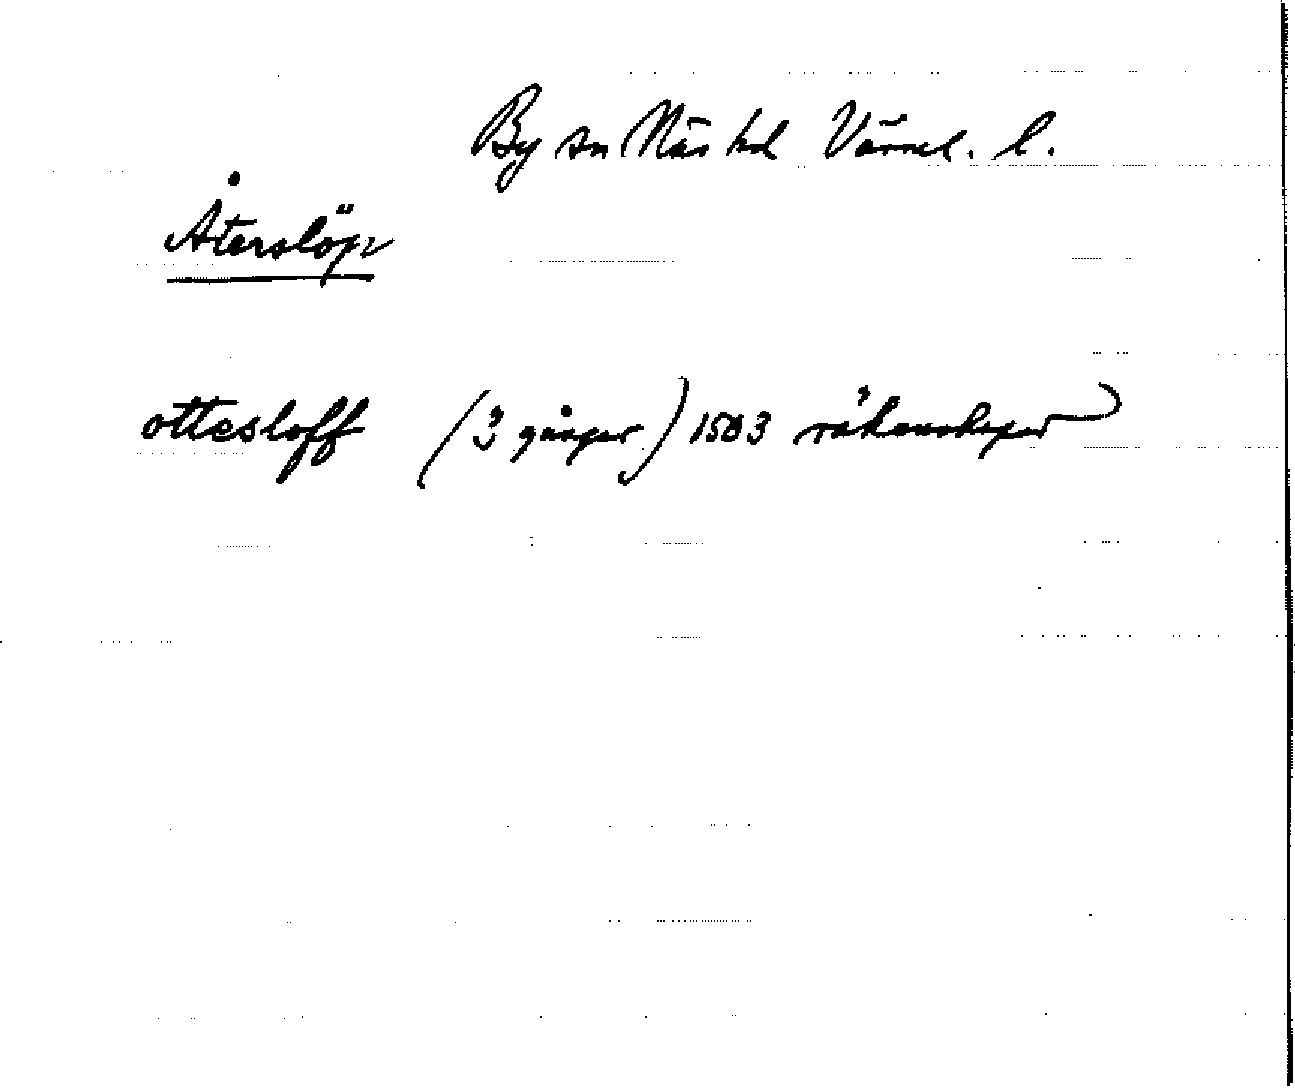 By sn Näs hd Värml. l.
Återslöp
ottesloff (3 gånger) 1503 räkenskaper